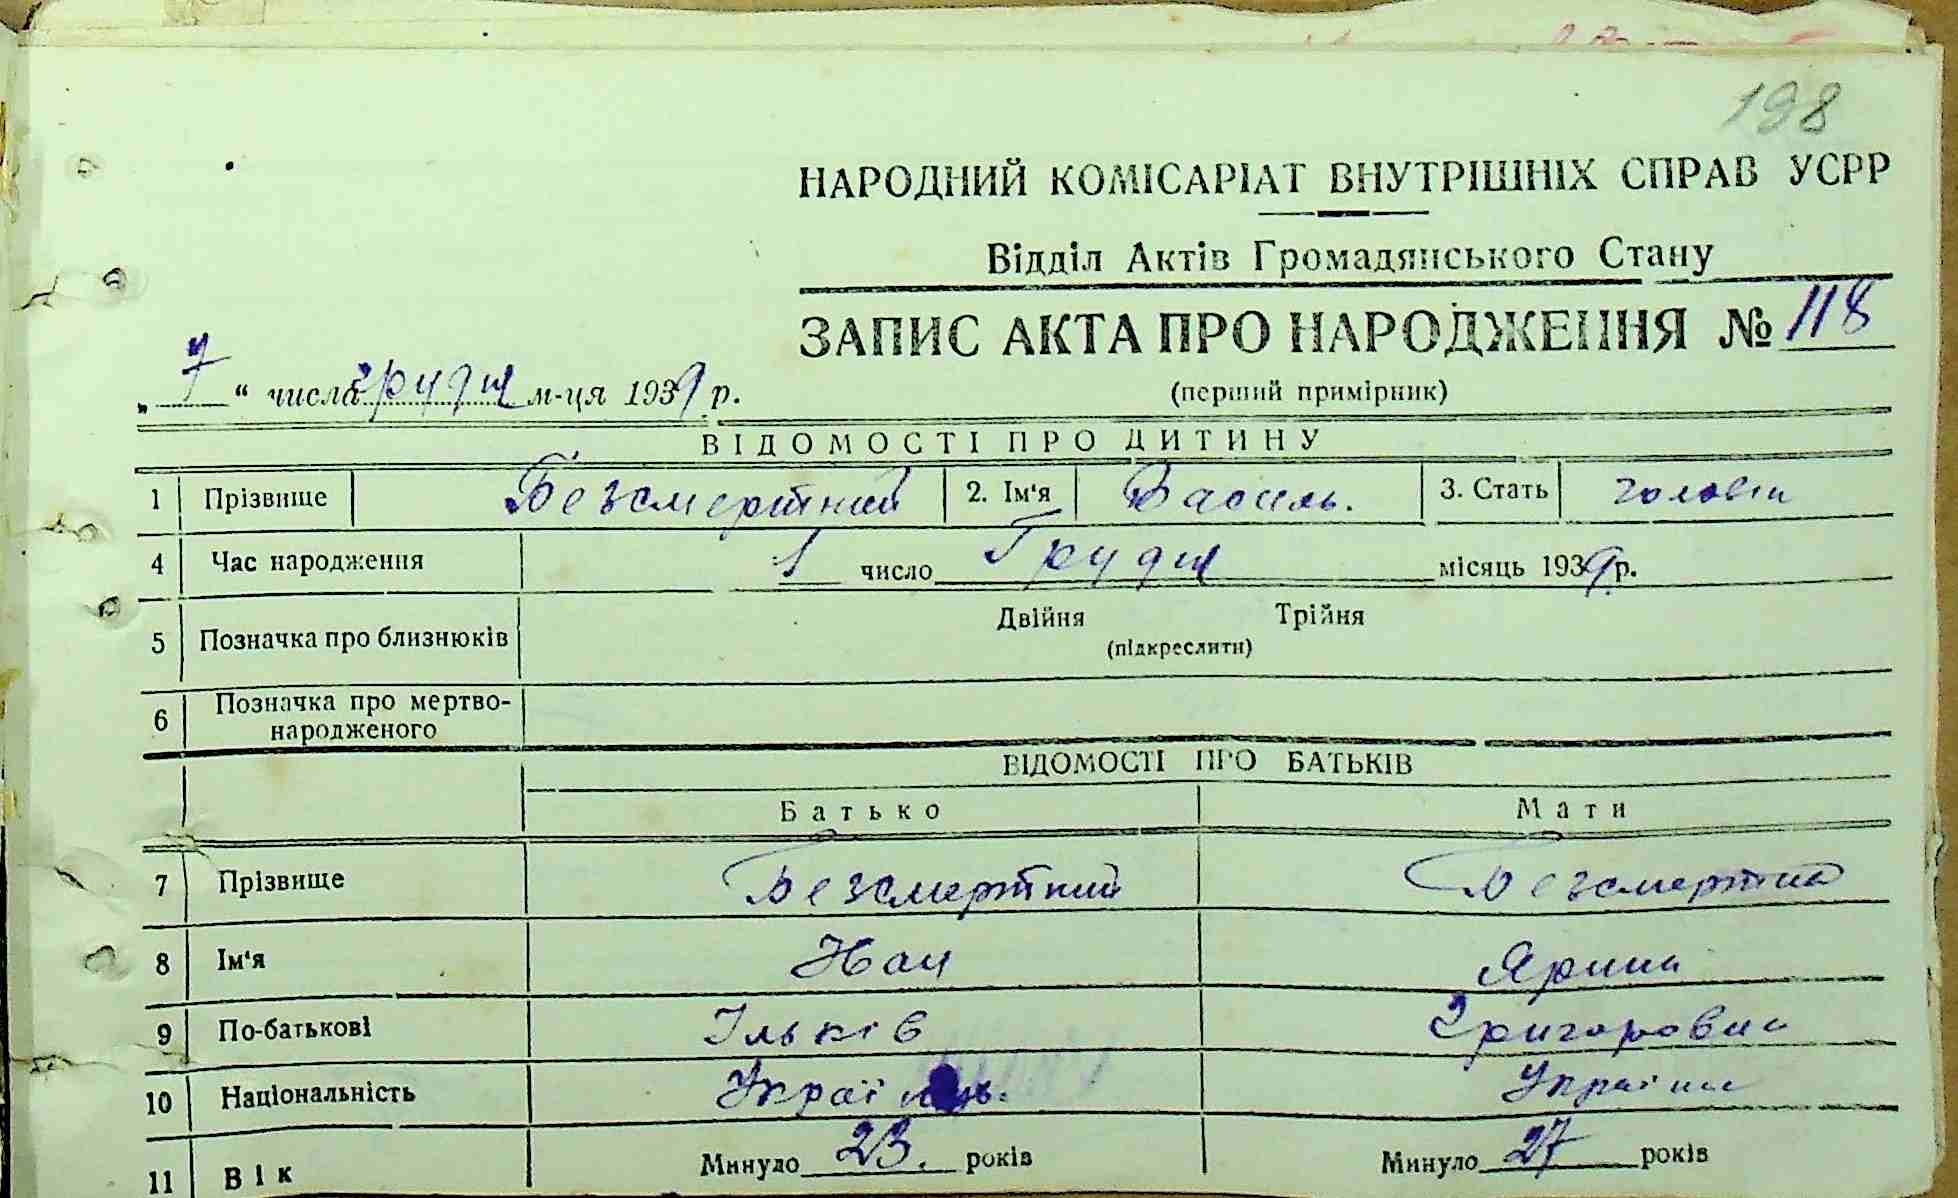 198
НАРОДНИЙ КОМІСАРІАТ ВНУТРІШНІХ СПРАВ УСРР
Відділ Актів Громадянського Стану
ЗАПИС АКТА ПРО НАРОДЖЕННЯ № 118
„ 7 “ числа грудня м-ця 1939 р.
(перший примірник)
ВІДОМОСТІ ПРО ДИТИНУ
1 Прізвище Безсмертний 2. Ім'я Василь. 3. Стать
4 Час народження 1 число Грудня місяць 1939 р.
5 Позначка про близнюків Двійня Трійня
(підкреслити)
6 Позначка про мертво-
народженого
ВІДОМОСТІ ПРО БАТЬКІВ
Батько Мати
7 Прізвище Безсмертний Безсмертна
8 Ім'я Ярина
9 По-батькові Ільків Григоровна
10 Національність Українець. Українка
11 Вік Минуло 23. років Минуло 27 років